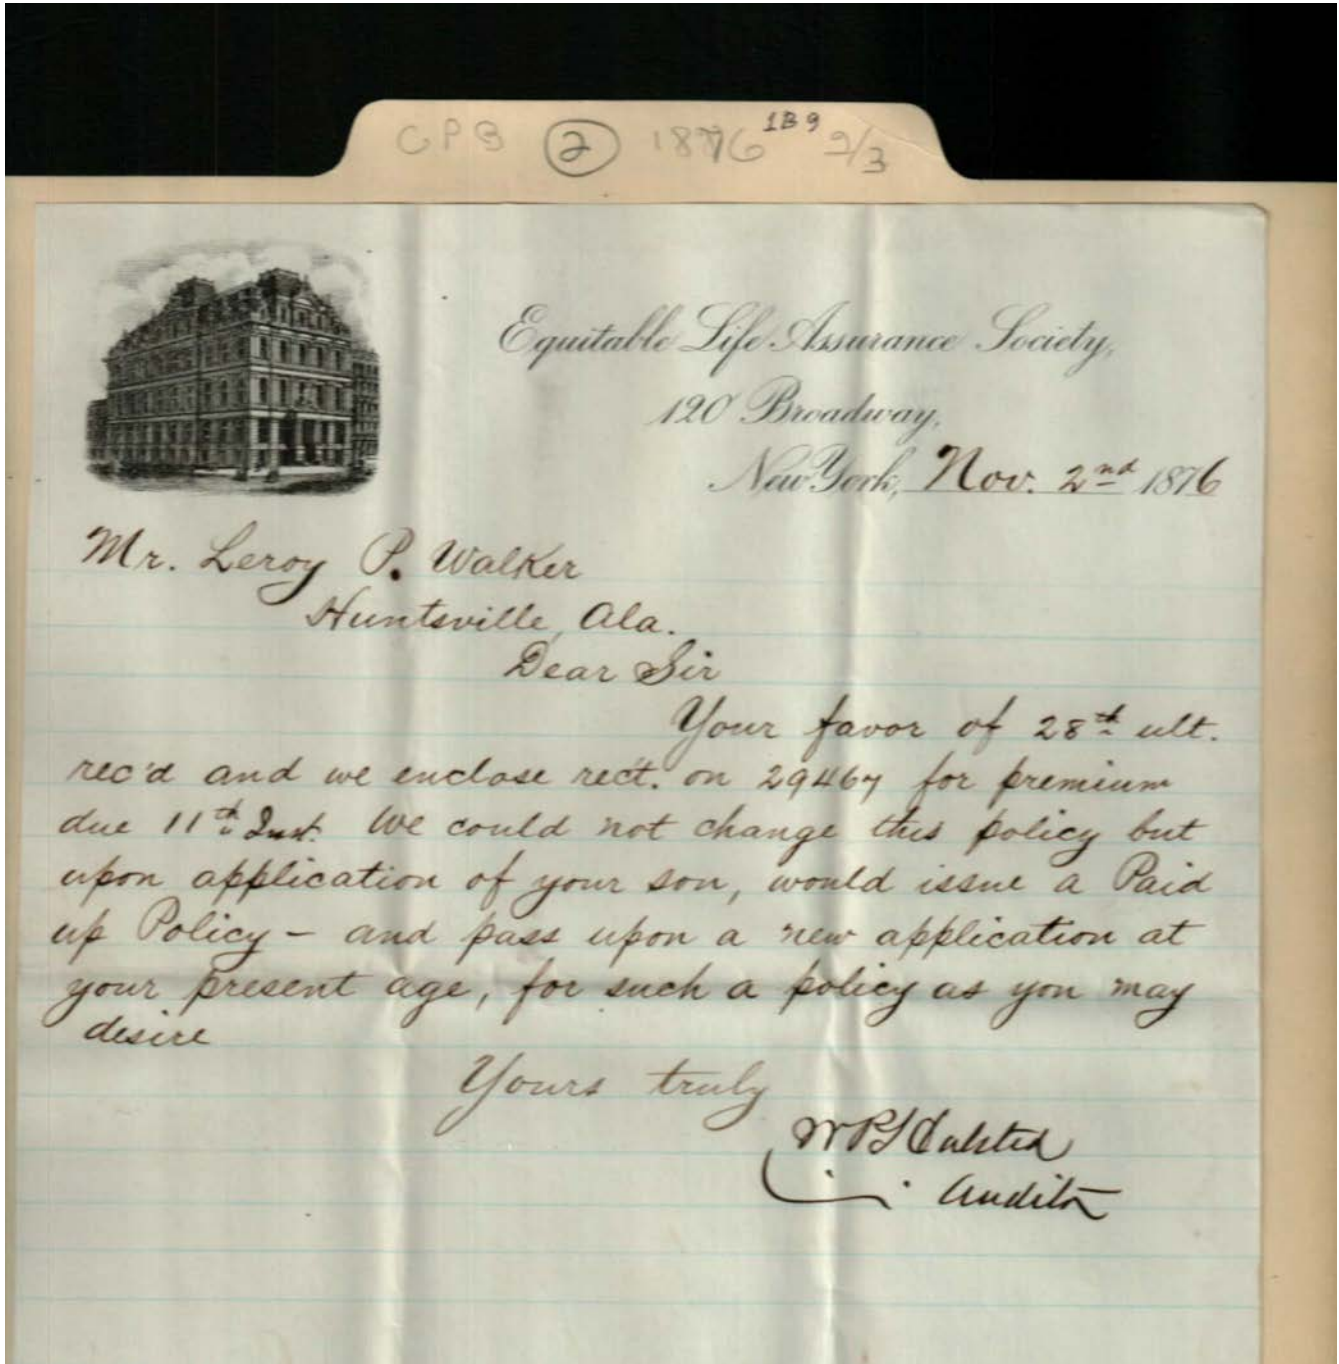 CPB 2 1876 1B9 2/3
Equitable Life Assurance Society,
120 Broadway,
New York, Nov. 2nd 1876
Mr. Leroy P. Walker
Huntsville, Ala.
Dear Sir
Your favor of 28th ult.
rec'd and we enclose rect. on 29467 for premium
due 11th Inst. We could not change this policy but
upon application of your son, would issue a Paid
up Policy - and pass upon a new application at
your present age, for such a policy as you may
desire
Yours truly
Auditor